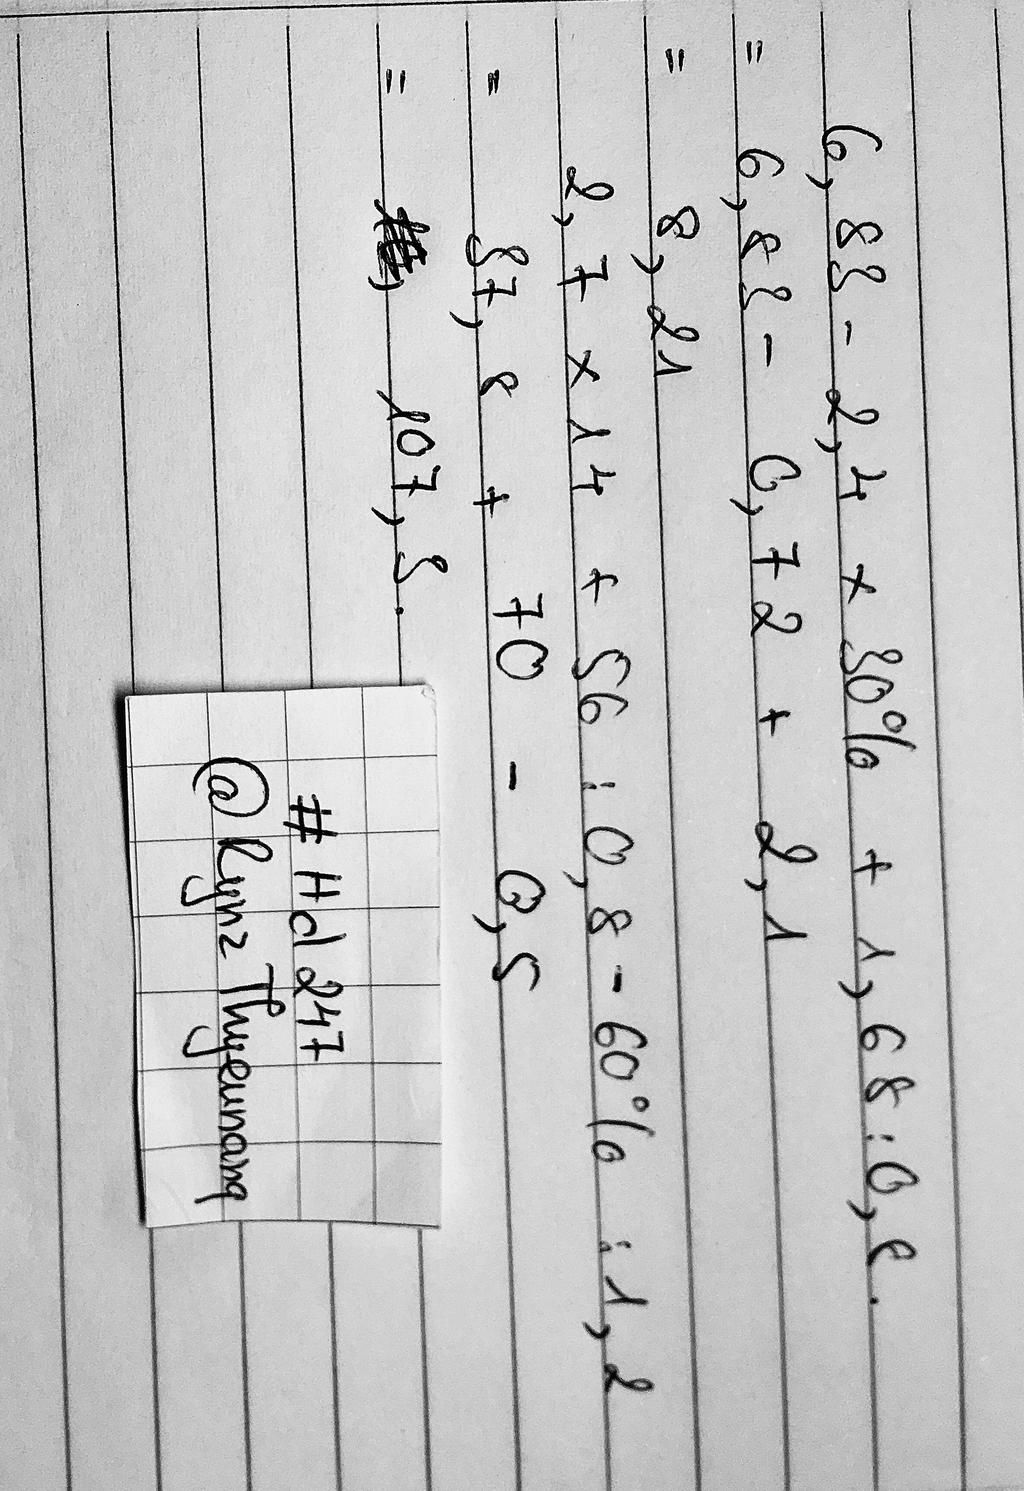 6,83 - 2,4 x 30% + 1,68 : 0,8.
= 6,83 - 0,72 + 2,1
= 8,21
2,7 x 14 + 56 : 0,8 - 60% : 1,2
= 37,8 + 70 - 0,5
= 107,3.
#Hd247
@Rynz Thyeunang